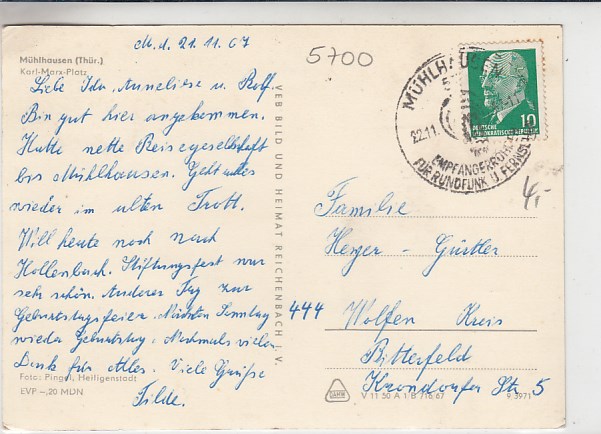 M. d. 21.11.67
5700
Mühlhausen (Thür.)
Karl-Marx-Platz
Liebe Ida, Anneliese u. Rolf
Bin gut hier angekommen.
Hatte nette Reisegesellschaft
bis Mühlhausen. Geht alles
wieder im alten Trott.
Will heute noch nach
Hollenbach. Stiftungsfest war
sehr schön. Anderer Tag zur
Geburtstagsfeier. Nächsten Sonntag
wieder Geburtstag. Nochmals vielen
Dank für Alles. Viele Grüße
Tilde.
Foto: Pingel, Heiligenstadt
EVP -,20 MDN
VEB BILD UND HEIMAT REICHENBACH I. V.
MÜHLHAUSEN
22.11.
EMPFÄNGERRÖHREN
FÜR RUNDFUNK U. FERNSEHEN
10
DEUTSCHE
DEMOKRATISCHE REPUBLIK
4,-
Familie
Heyer - Gürtler
444 Wolfen Kreis
Bitterfeld
Krondorfer Str. 5
V 11 50 A 1 B 716 67
9.3971